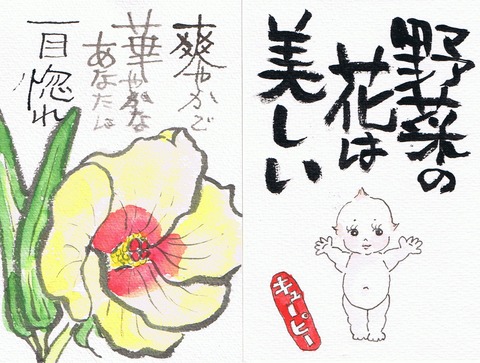 野菜の
花は
美しい
キューピー
爽やかで
華やかな
あなたに
一目惚れ